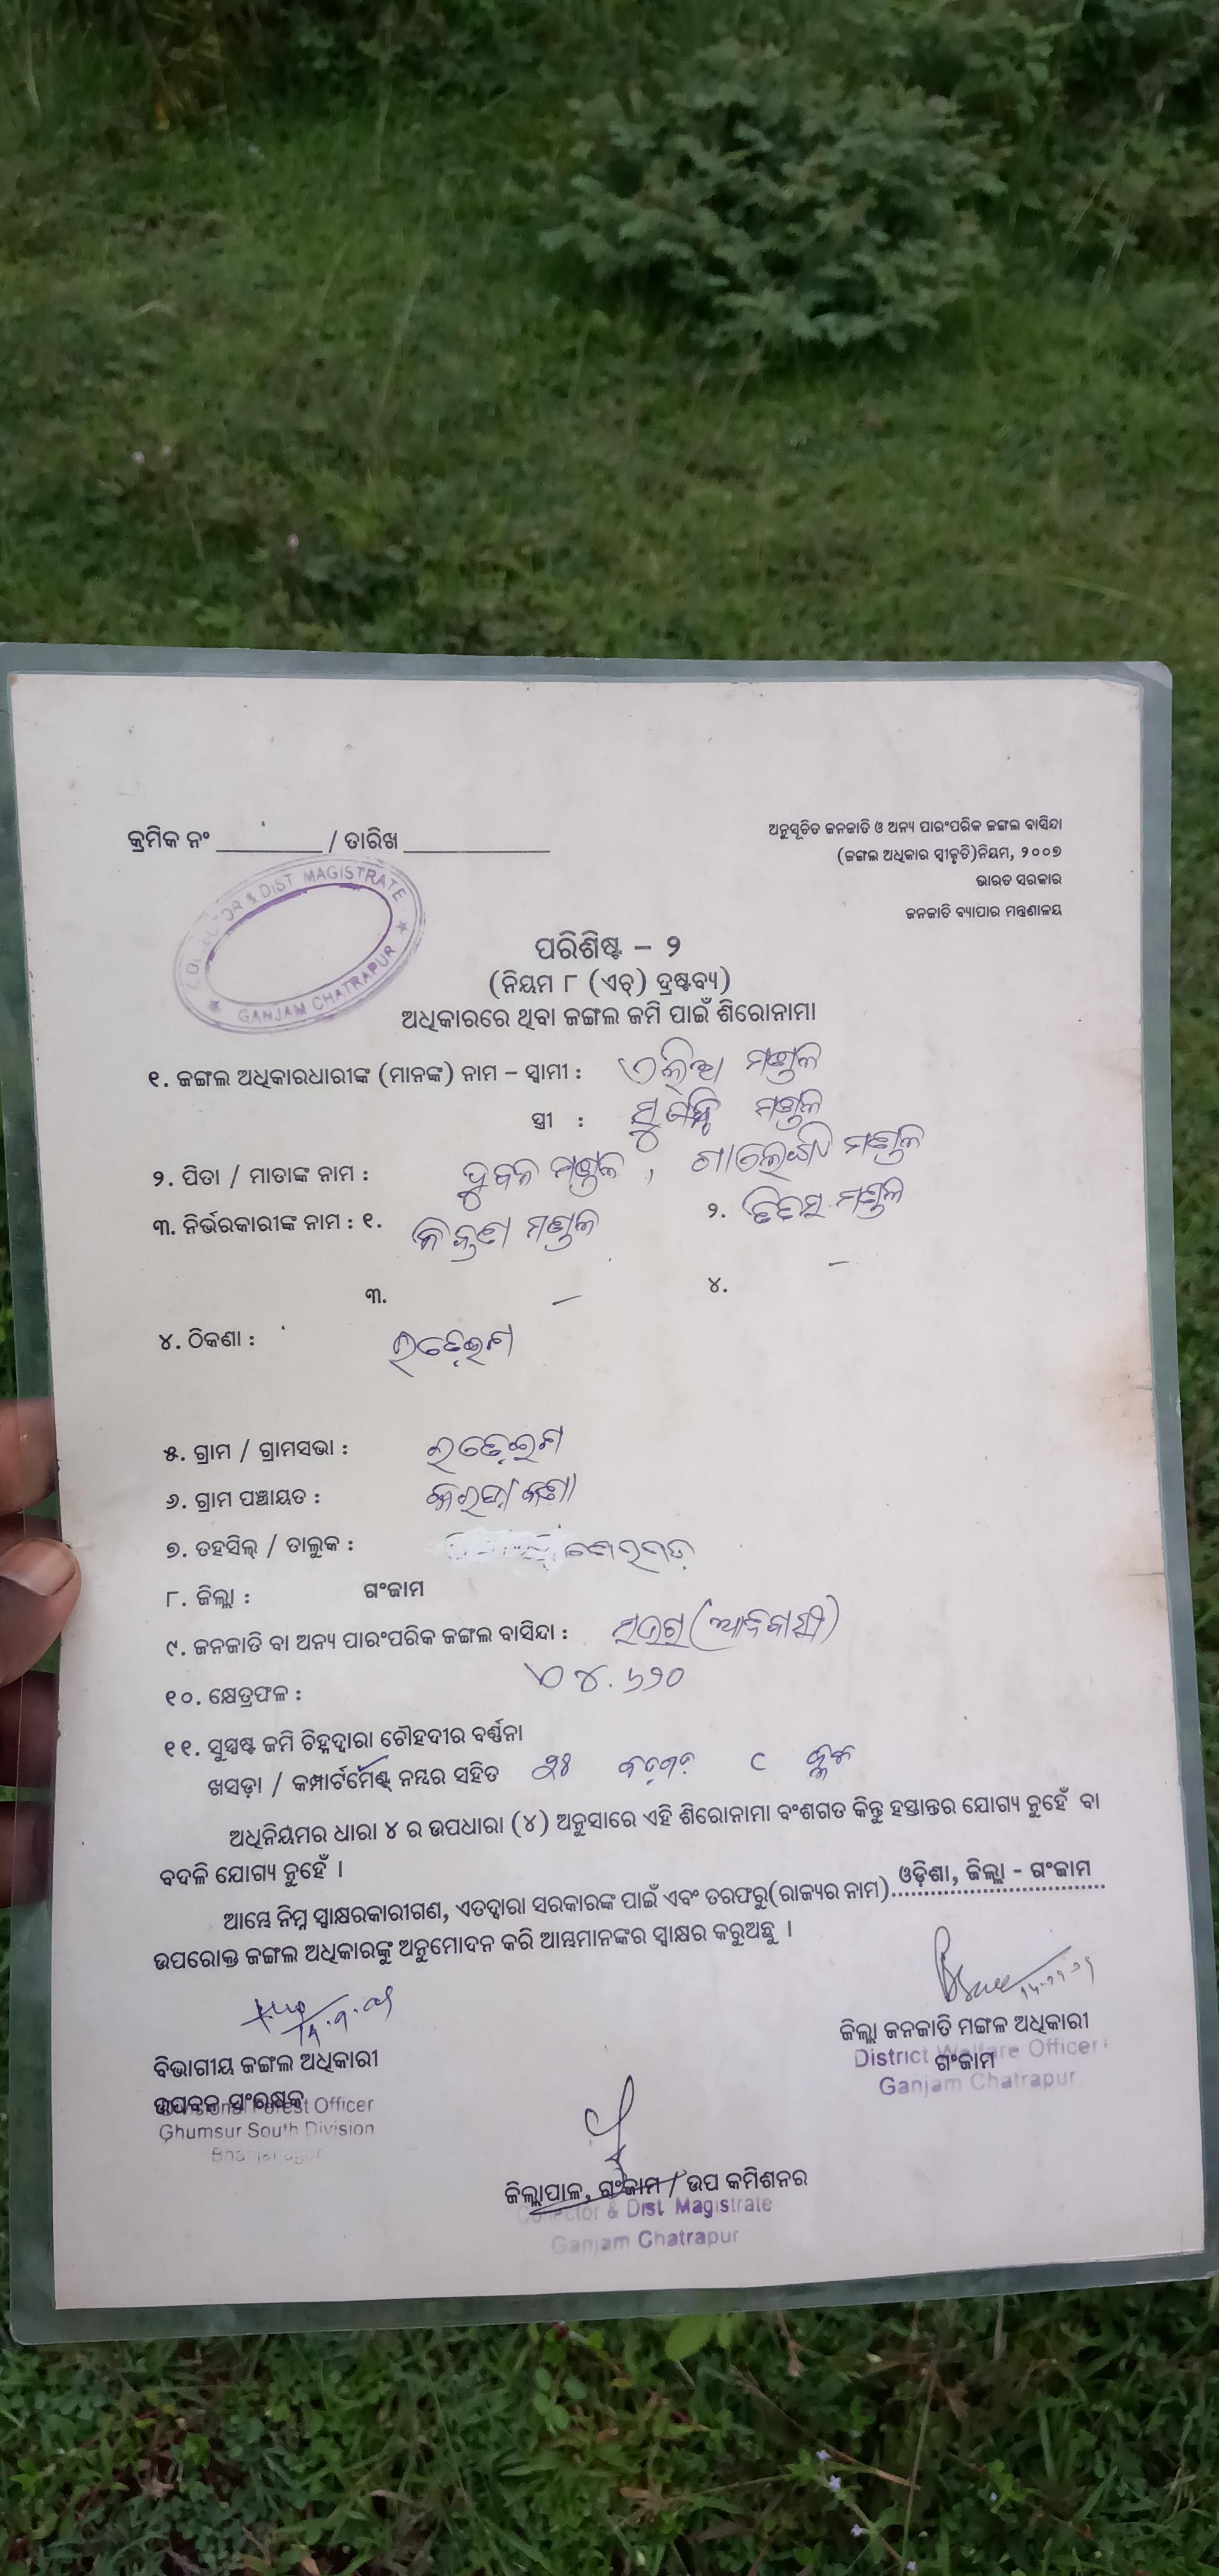 କ୍ରମିକ ନଂ ________ / ତାରିଖ ___________
ଅନୁସୂଚିତ ଜନଜାତି ଓ ଅନ୍ୟ ପାରଂପରିକ ଜଙ୍ଗଲ ବାସିନ୍ଦା
(ଜଙ୍ଗଲ ଅଧିକାର ସ୍ୱୀକୃତି)ନିୟମ, ୨୦୦୭
ଭାରତ ସରକାର
ଜନଜାତି ବ୍ୟାପାର ମନ୍ତ୍ରଣାଳୟ
COLLECTOR & DIST MAGISTRATE
GANJAM CHATRAPUR
ପରିଶିଷ୍ଟ – ୨
(ନିୟମ ୮ (ଏଚ୍) ଦ୍ରଷ୍ଟବ୍ୟ)
ଅଧିକାରରେ ଥିବା ଜଙ୍ଗଲ ଜମି ପାଇଁ ଶିରୋନାମା
୧. ଜଙ୍ଗଲ ଅଧିକାରଧାରୀଙ୍କ (ମାନଙ୍କ) ନାମ – ସ୍ୱାମୀ : ମଣ୍ଡଳ
ସ୍ତ୍ରୀ : ମଣ୍ଡଳ
୨. ପିତା / ମାତାଙ୍କ ନାମ : ମଣ୍ଡଳ , ମଣ୍ଡଳ
୩. ନିର୍ଭରକାରୀଙ୍କ ନାମ : ୧. ମଣ୍ଡଳ ୨. ମଣ୍ଡଳ
୩. – ୪. –
୪. ଠିକଣା :
୫. ଗ୍ରାମ / ଗ୍ରାମସଭା :
୬. ଗ୍ରାମ ପଞ୍ଚାୟତ :
୭. ତହସିଲ୍ / ତାଲୁକ :
୮. ଜିଲ୍ଲା : ଗଂଜାମ
୯. ଜନଜାତି ବା ଅନ୍ୟ ପାରଂପରିକ ଜଙ୍ଗଲ ବାସିନ୍ଦା : (ଆଦିବାସୀ)
୧୦. କ୍ଷେତ୍ରଫଳ : ୪.୬୨୦
୧୧. ସୁସ୍ପଷ୍ଟ ଜମି ଚିହ୍ନଦ୍ୱାରା ଚୌହଦୀର ବର୍ଣ୍ଣନା
ଖସଡ଼ା / କମ୍ପାର୍ଟମେଣ୍ଟ୍ ନମ୍ବର ସହିତ
ଅଧିନିୟମର ଧାରା ୪ ର ଉପଧାରା (୪) ଅନୁସାରେ ଏହି ଶିରୋନାମା ବଂଶଗତ କିନ୍ତୁ ହସ୍ତାନ୍ତର ଯୋଗ୍ୟ ନୁହେଁ ବା
ବଦଳି ଯୋଗ୍ୟ ନୁହେଁ ।
ଆମ୍ଭେ ନିମ୍ନ ସ୍ୱାକ୍ଷରକାରୀଗଣ, ଏତଦ୍ୱାରା ସରକାରଙ୍କ ପାଇଁ ଏବଂ ତରଫରୁ(ରାଜ୍ୟର ନାମ) ଓଡ଼ିଶା, ଜିଲ୍ଲା - ଗଂଜାମ
ଉପରୋକ୍ତ ଜଙ୍ଗଲ ଅଧିକାରଙ୍କୁ ଅନୁମୋଦନ କରି ଆମ୍ଭମାନଙ୍କର ସ୍ୱାକ୍ଷର କରୁଅଛୁ ।
ବିଭାଗୀୟ ଜଙ୍ଗଲ ଅଧିକାରୀ
ଉପବନ ସଂରକ୍ଷକ
Divisional Forest Officer
Ghumsur South Division
ଜିଲ୍ଲା ଜନଜାତି ମଙ୍ଗଳ ଅଧିକାରୀ
ଗଂଜାମ
District Welfare Officer
Ganjam Chatrapur
ଜିଲ୍ଲାପାଳ, ଗଂଜାମ / ଉପ କମିଶନର
Collector & Dist. Magistrate
Ganjam Chatrapur